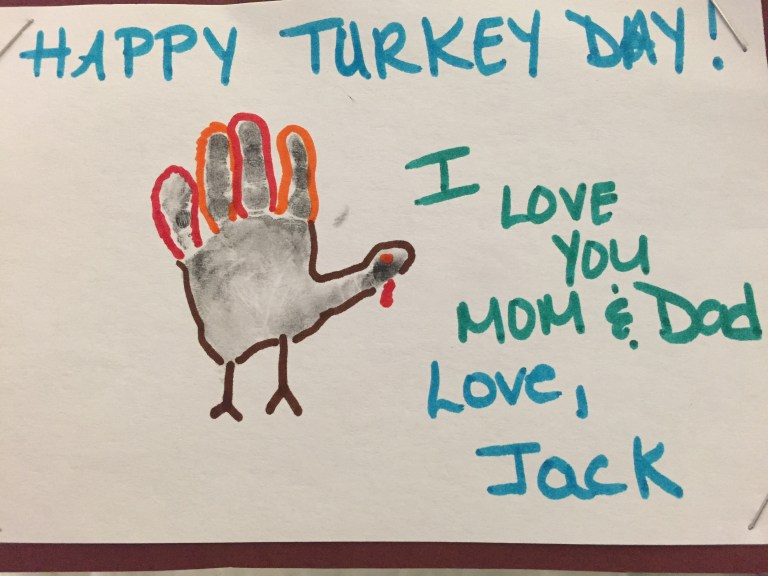 HAPPY TURKEY DAY!
I LOVE
YOU
MOM & Dad
Love,
Jack